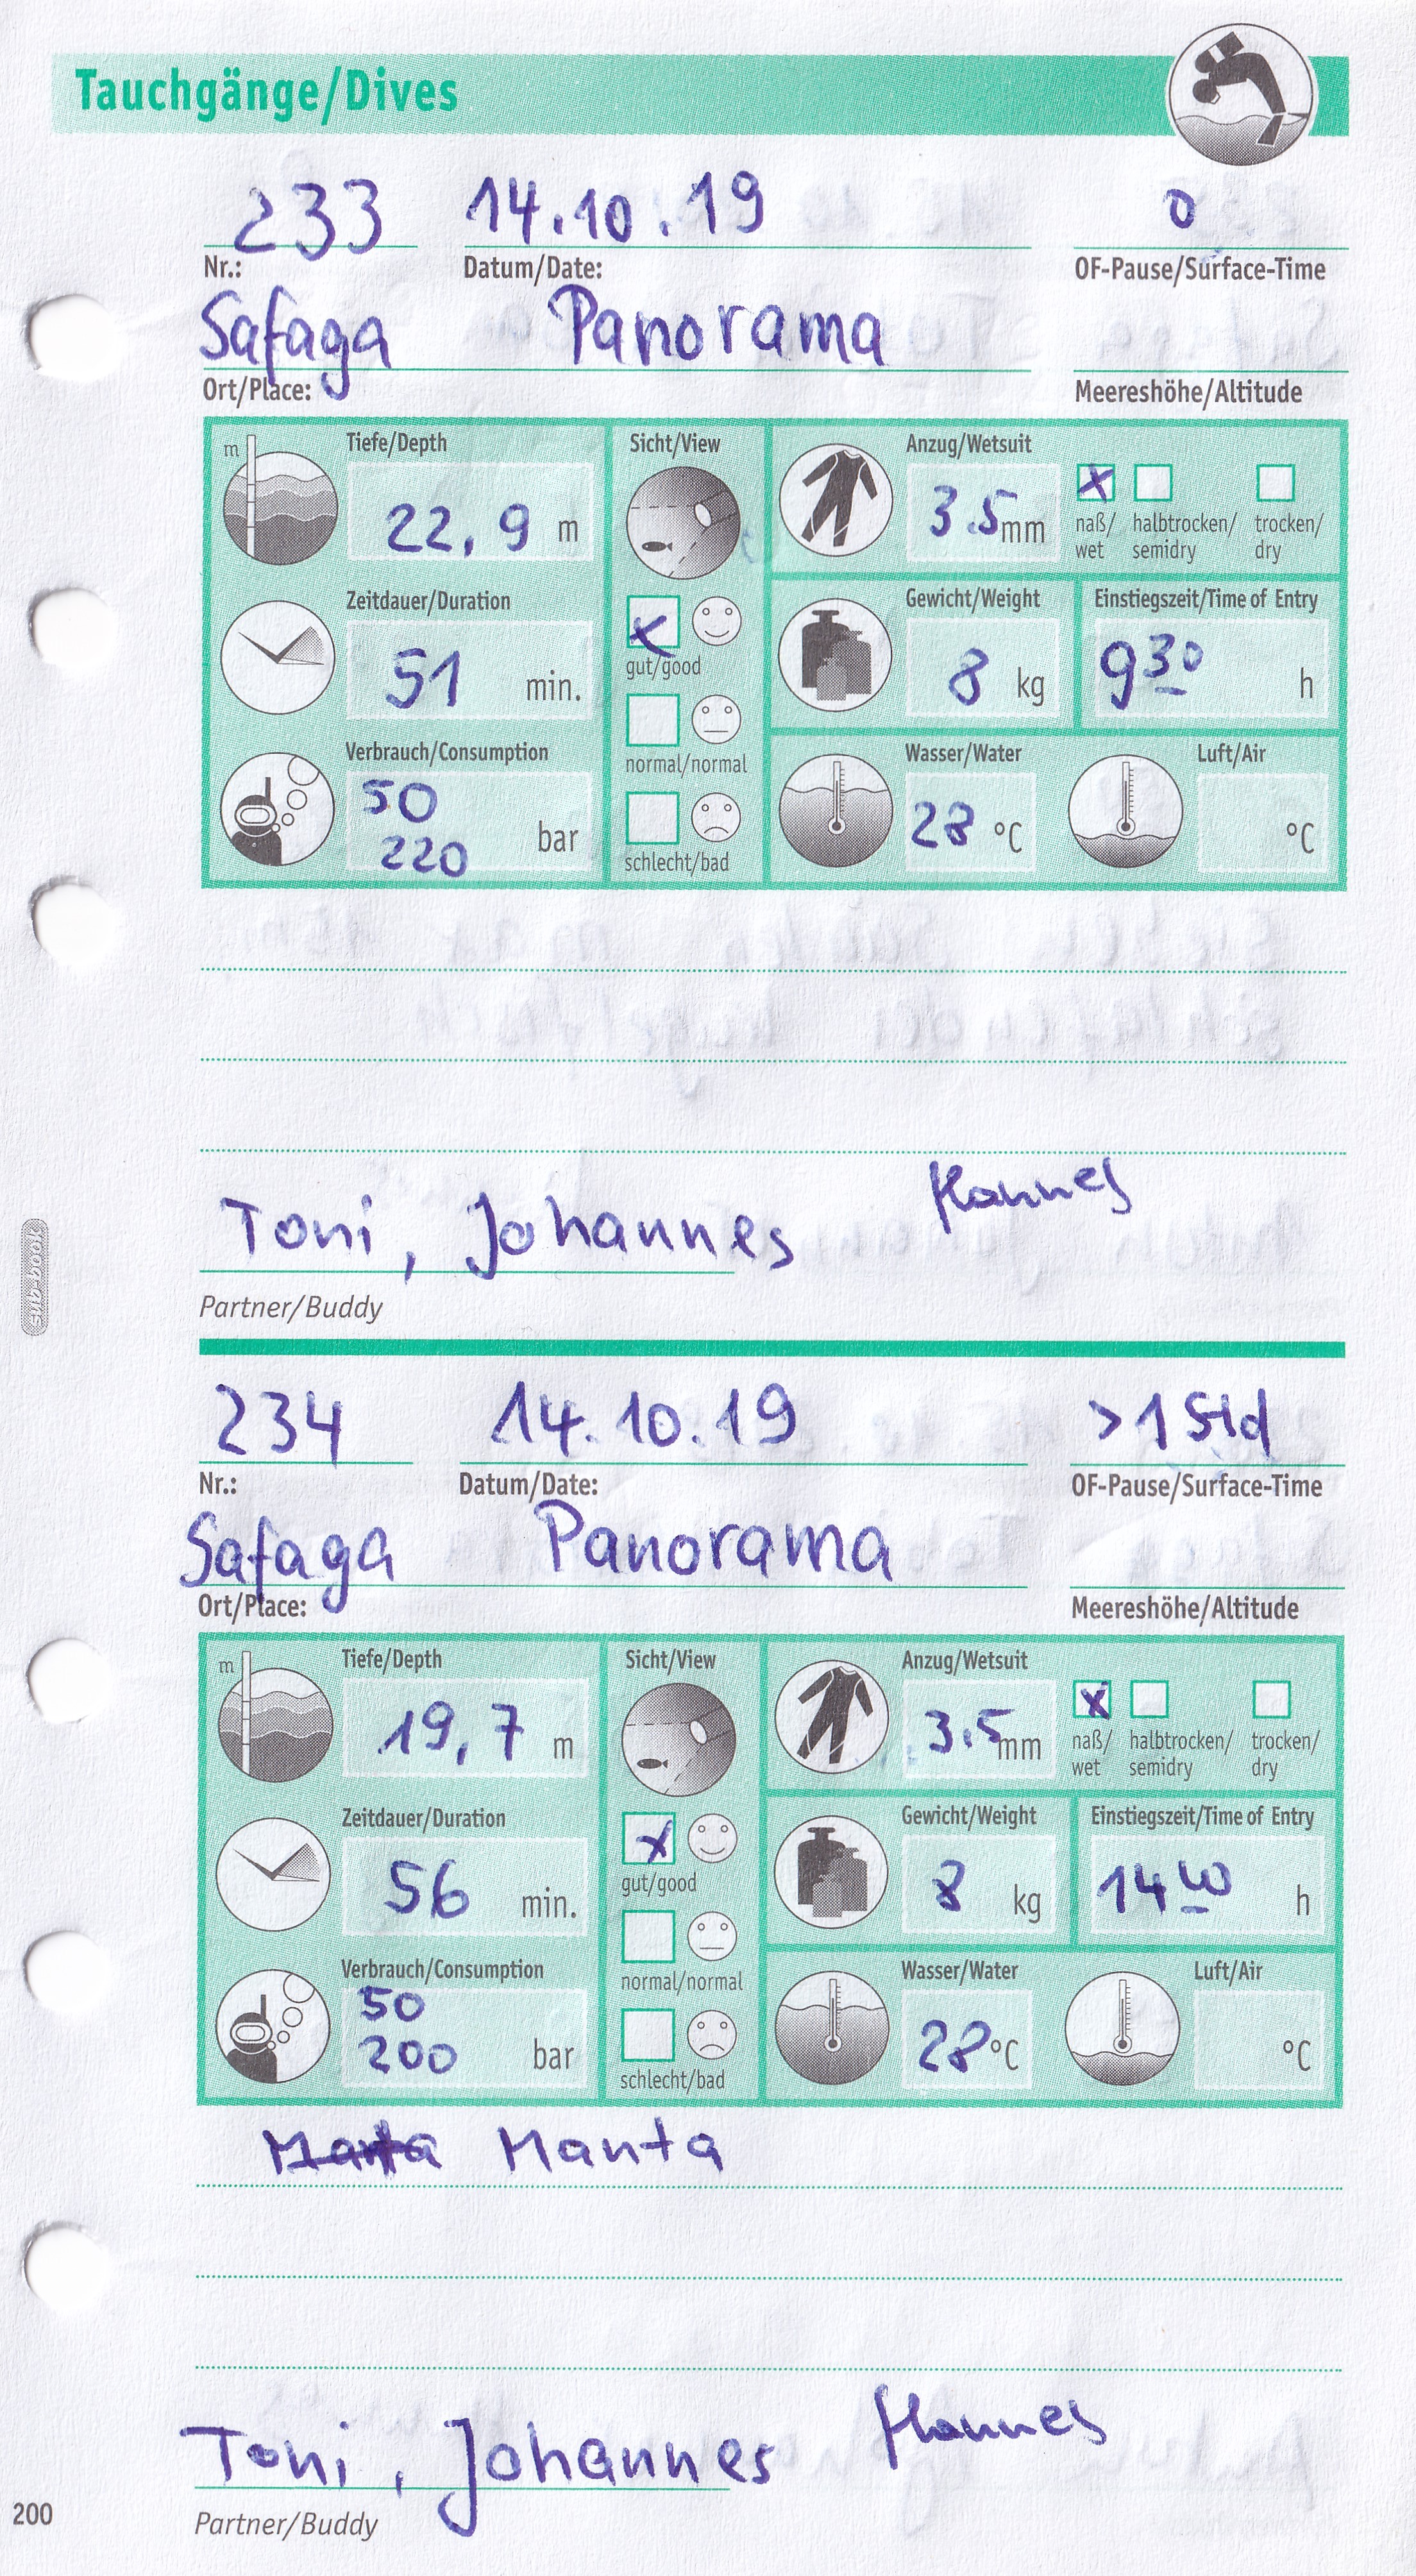 Tauchgänge/Dives
233 14.10.19 0
Nr.: Datum/Date: OF-Pause/Surface-Time
Safaga Panorama
Ort/Place: Meereshöhe/Altitude
m Tiefe/Depth Sicht/View Anzug/Wetsuit
22,9 m 3.5 mm x
naß/ halbtrocken/ trocken/
wet semidry dry
Zeitdauer/Duration Gewicht/Weight Einstiegszeit/Time of Entry
51 min. x 8 kg 9 30 h
gut/good
normal/normal
Verbrauch/Consumption Wasser/Water Luft/Air
50
220 bar 28 °C °C
schlecht/bad
Hannes
Toni, Johannes
Partner/Buddy
sub-book
234 14.10.19 >1 Std
Nr.: Datum/Date: OF-Pause/Surface-Time
Safaga Panorama
Ort/Place: Meereshöhe/Altitude
m Tiefe/Depth Sicht/View Anzug/Wetsuit
19,7 m 3.5 mm x
naß/ halbtrocken/ trocken/
wet semidry dry
Zeitdauer/Duration Gewicht/Weight Einstiegszeit/Time of Entry
56 min. x 8 kg 14 40 h
gut/good
normal/normal
Verbrauch/Consumption Wasser/Water Luft/Air
50
200 bar 28 °C °C
schlecht/bad
Manta
Hannes
Toni, Johannes
Partner/Buddy
200